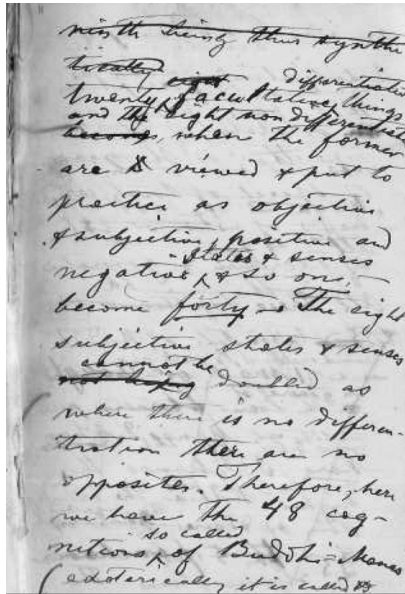 ninth being thus synthe
tically eight differentiated
twenty facultative things
and the eight non differentiated
becomes, when the former
are viewed & put to
practice as objective
& subjective, positive and
States & senses
negative & so on, –
become forty – The eight
subjective states & senses
cannot be
not being doubled as
where there is no differen-
tiation there are no
opposites. Therefore, here
we have the 48 cog-
so called
nitions, of Buddhi=Manas
(exoterically it is called